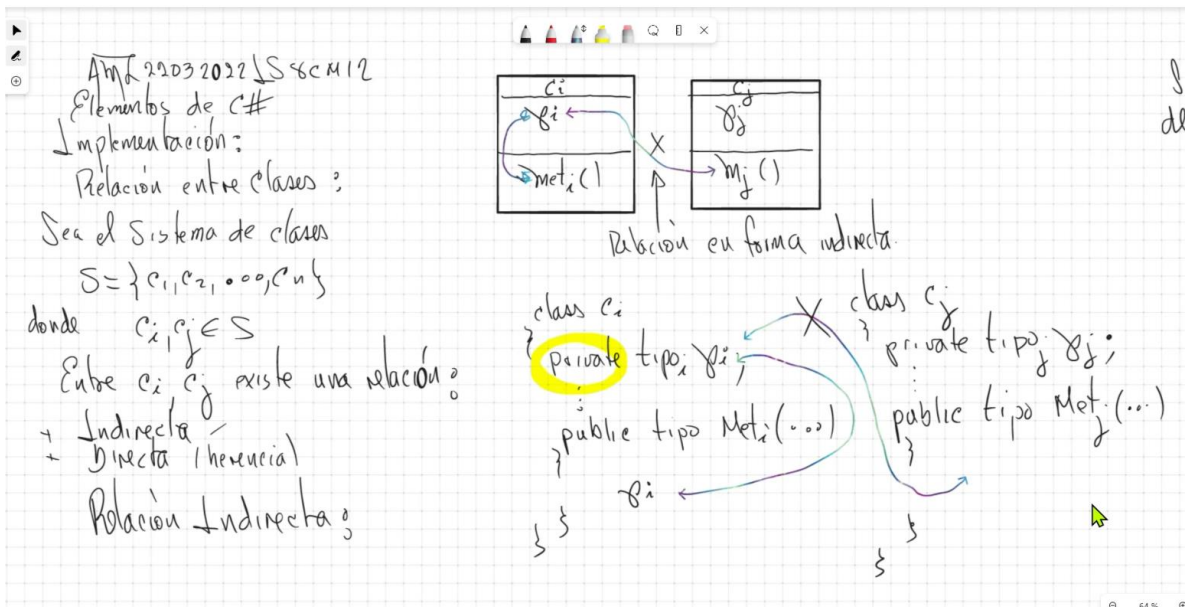 22032022
Elementos de C#
Implementación:
Relación entre clases:
Sea el Sistema de clases
S={c₁,c₂,...,cₙ}
donde Cᵢ,Cⱼ ∈ S
Entre Cᵢ, Cⱼ existe una relación:
+ Indirecta
+ Directa (herencia)
Relación Indirecta:
Cᵢ
γᵢ
metᵢ()
X
Cⱼ
γⱼ
mⱼ()
Relación en forma indirecta.
class Cᵢ
{
private tipoᵢ γᵢ;
:
public tipo Metᵢ(...)
{
γᵢ
}
}
X
class Cⱼ
{
private tipoⱼ γⱼ;
:
public tipo Metⱼ(...)
{
}
}
de
64 %